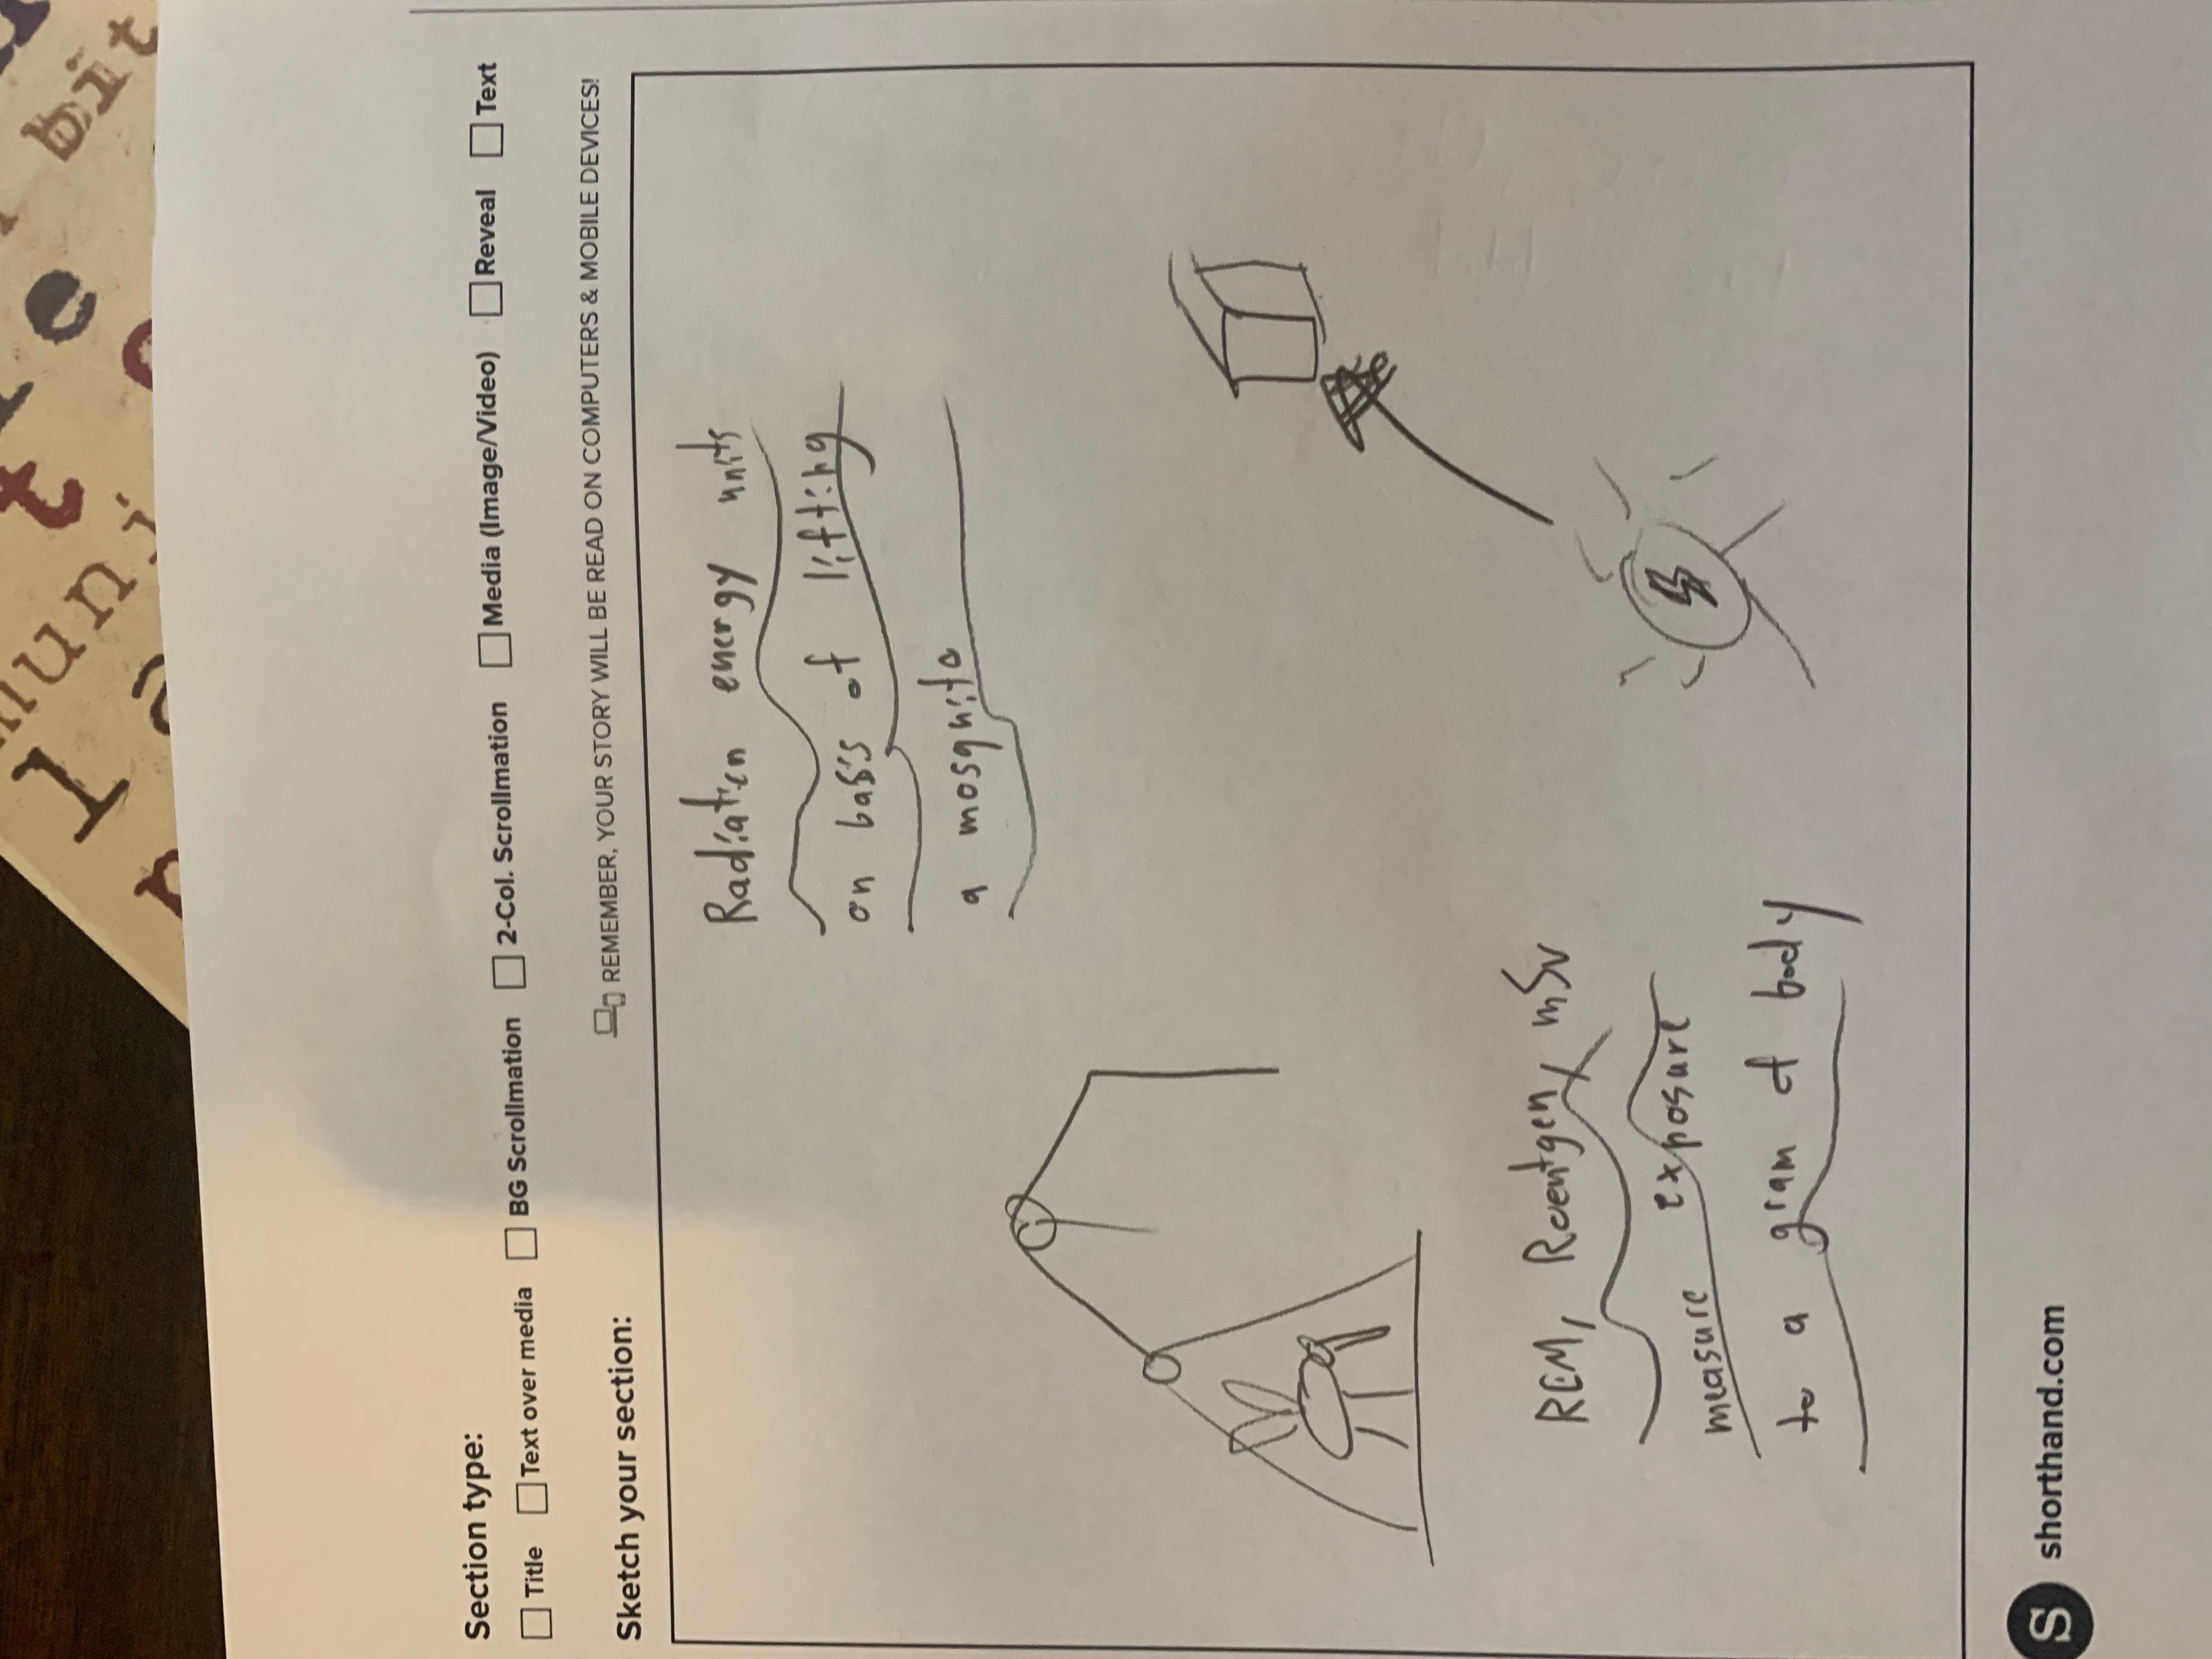 l uni t e bit
r a e
Section type:
Title Text over media BG Scrollmation 2-Col. Scrollmation Media (Image/Video) Reveal Text
Sketch your section: REMEMBER, YOUR STORY WILL BE READ ON COMPUTERS & MOBILE DEVICES!
Radiation energy units
on basis of lifting
a mosquito
REM, Roentgen, mSv
measure exposure
to a gram of body
S shorthand.com